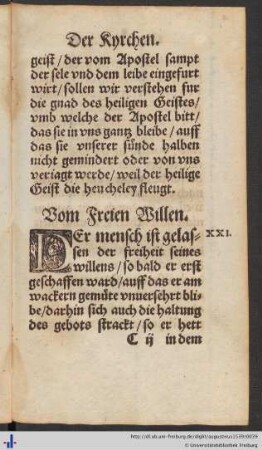 Der Kyrchen.
geist/ der vom Apostel sampt
der sele vnd dem leibe eingefurt
wirt/ sollen wir verstehen fur
die gnad des heiligen Geistes/
vmb welche der Apostel bitt/
das sie in vns gantz bleibe/ auff
das sie vnserer sünde halben
nicht gemindert oder von vns
veriagt werde/ weil der heilige
Geist die heucheley fleugt.
Vom Freien Willen.
DEr mensch ist gelas-
XXI.
sen der freiheit seines
willens/ so bald er erst
geschaffen ward/ auff das er am
wackern gemüte vnuersehrt bli-
be/ darhin sich auch die haltung
des gebots strackt/ so er hett
C ij in dem
© Universitätsbibliothek Freiburg